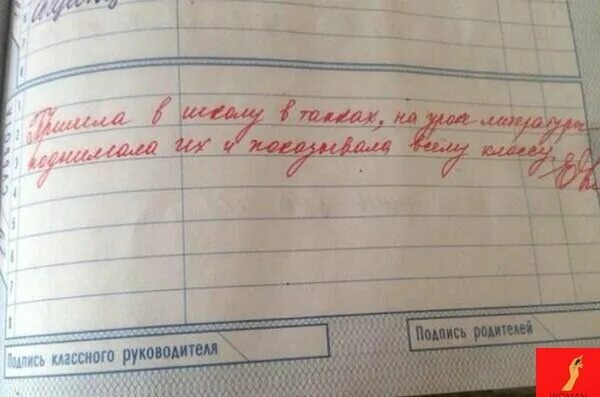 СУББОТА
Пришла в школу в тапках, на урок литературы
поднимала их и показывала всему классу.
Подпись классного руководителя
Подпись родителей
WOMAN